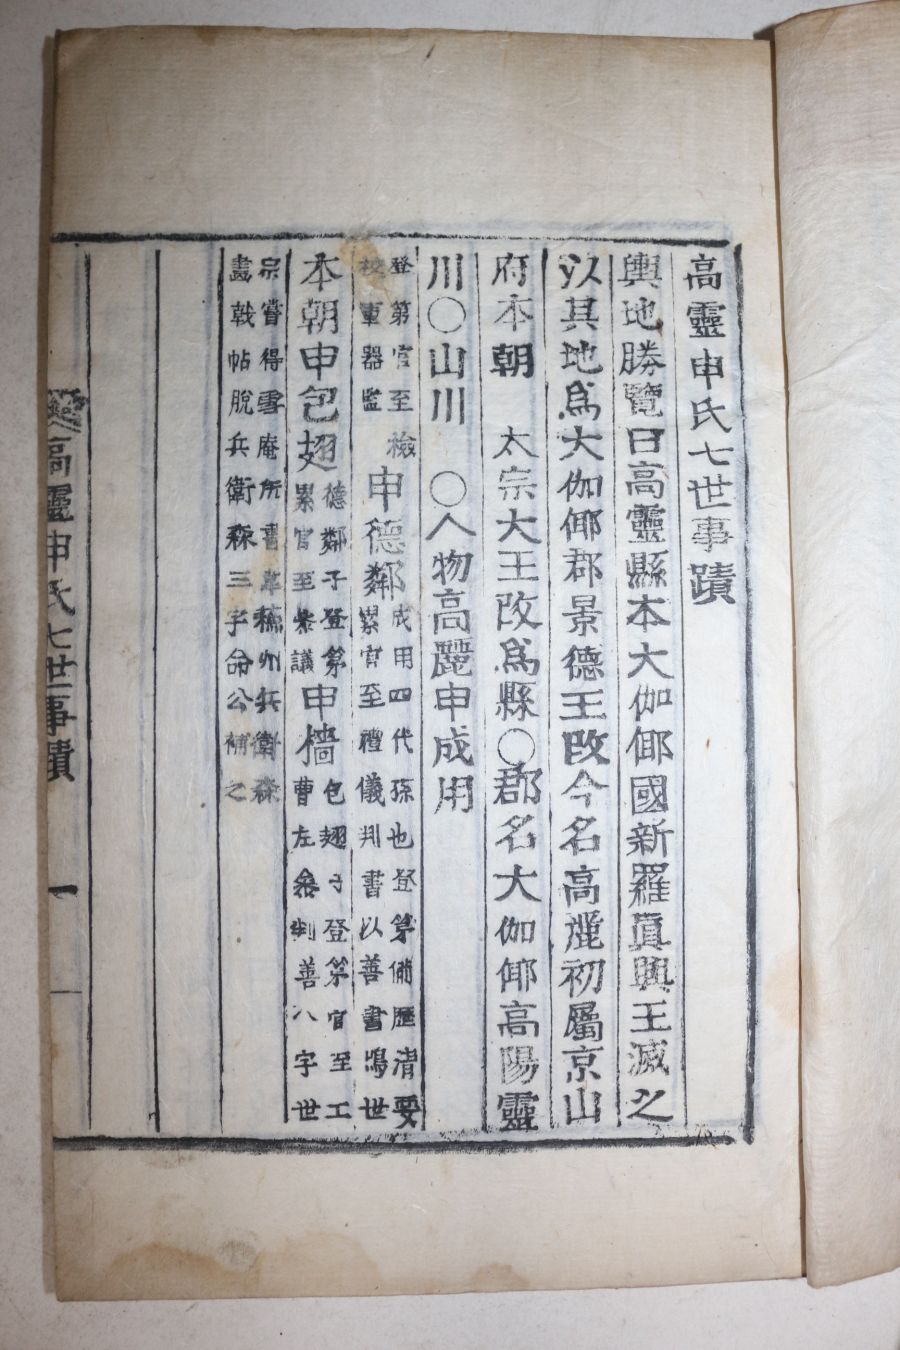 高靈申氏七世事蹟
輿地勝覽曰高靈縣本大伽倻國新羅眞興王滅之
以其地爲大伽倻郡景德王改今名高麗初屬京山
府本朝 太宗大王改爲縣○郡名大伽倻高陽靈
川○山川 ○人物高麗申成用
登第官至檢校軍器監申德鄰成用四代孫也登第備歷清要累官至禮儀判書以善書鳴世
本朝申包翅德鄰子登第累官至參議申檣包翅子登第官至工曹左參判善八字世
宗嘗得雪庵所書韋蘇州兵衛森
畫戟帖脫兵衛森三字命公補之
高靈申氏七世事蹟 一